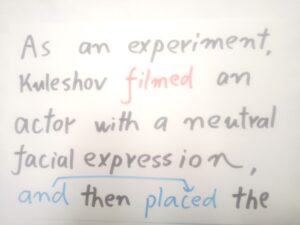 As an experiment,
Kuleshov filmed an
actor with a neutral
facial expression,
and then placed the